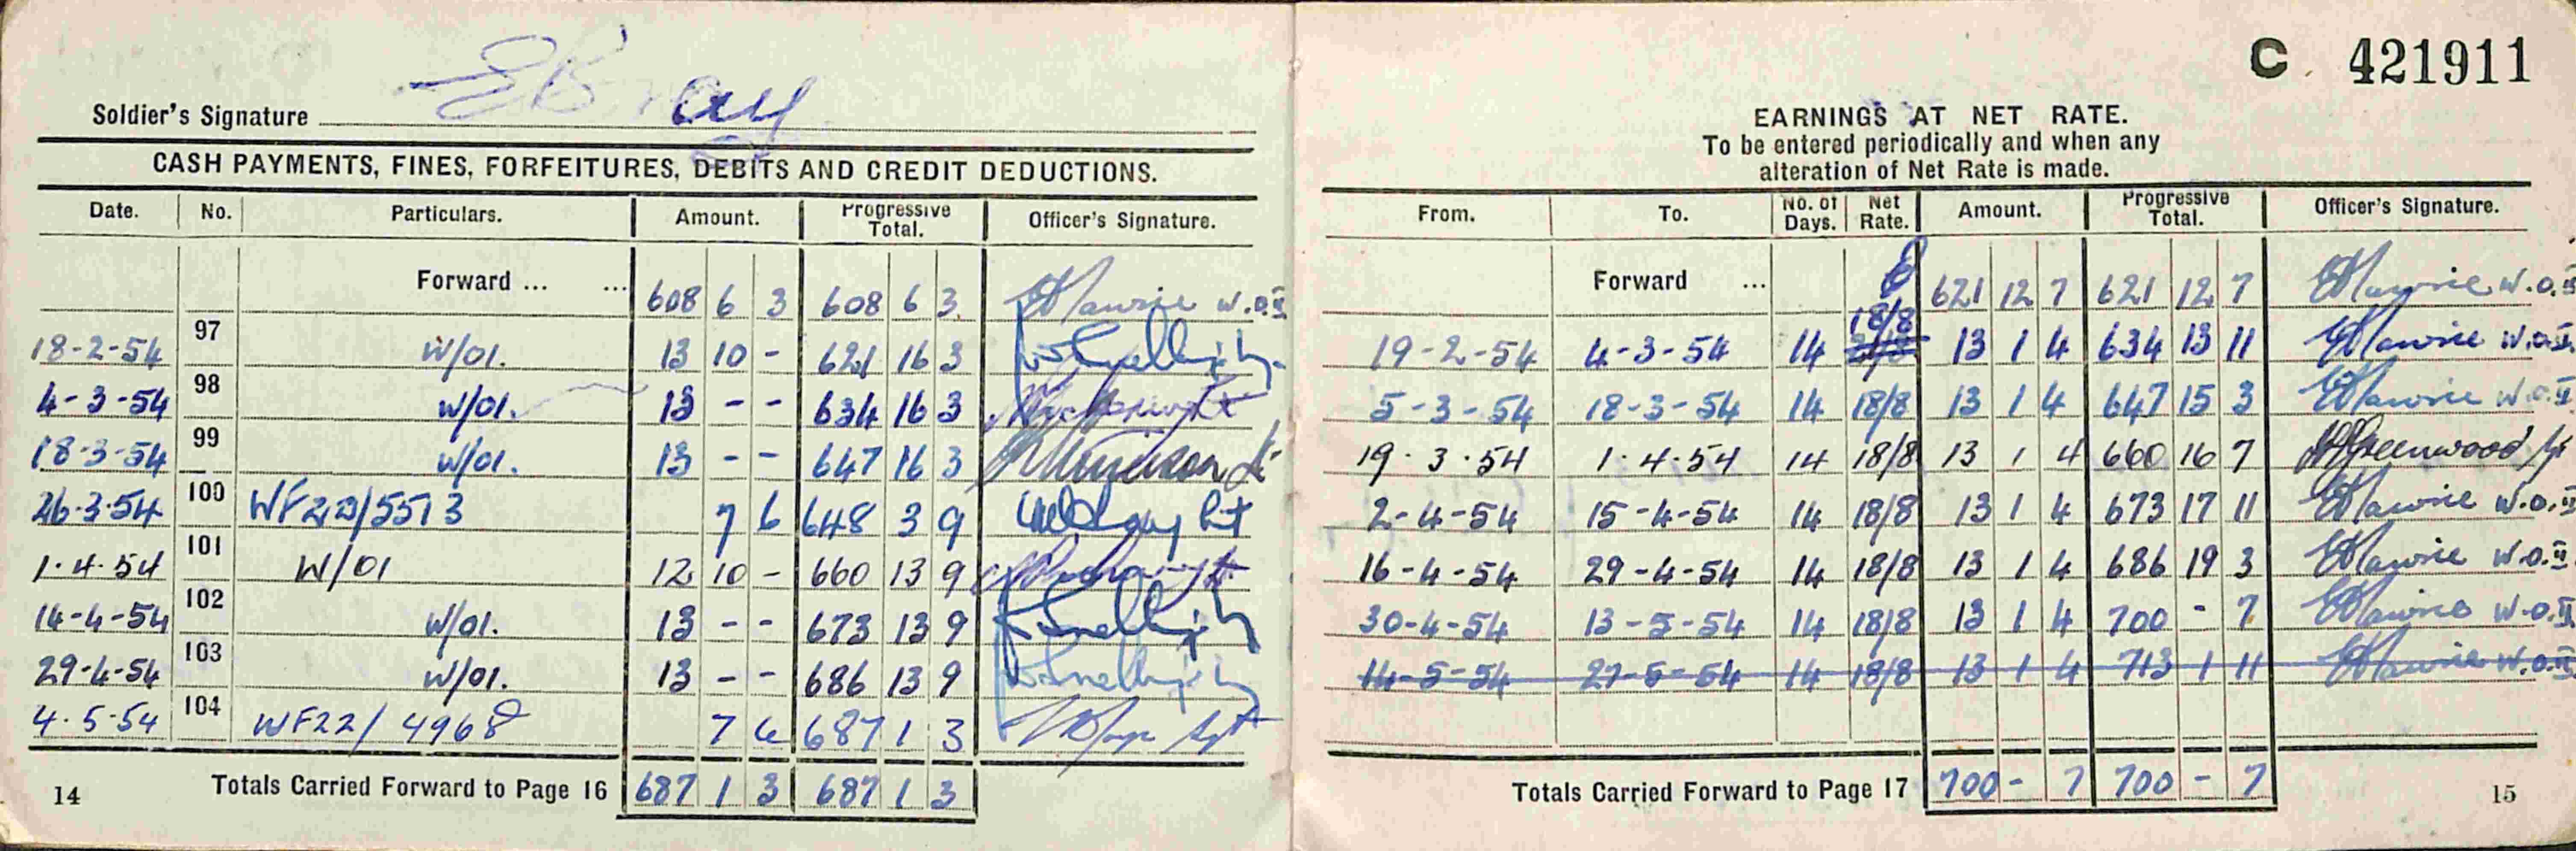 Soldier's Signature E Bray
CASH PAYMENTS, FINES, FORFEITURES, DEBITS AND CREDIT DEDUCTIONS.
Date. No. Particulars. Amount. Progressive Total. Officer's Signature.
Forward ... ... 608 6 3 608 6 3 W.O.II
18-2-54 97 W/01. 13 10 - 621 16 3
4-3-54 98 W/01. 13 - - 634 16 3
18-3-54 99 W/01. 13 - - 647 16 3
26-3-54 100 WF22/5513 7 6 648 3 9
1.4.54 101 W/01 12 10 - 660 13 9
14-4-54 102 W/01. 13 - - 673 13 9
29-4-54 103 W/01. 13 - - 686 13 9
4.5.54 104 WF22/4968 7 6 687 1 3 Sgt
Totals Carried Forward to Page 16 687 1 3 687 1 3
14
C 421911
EARNINGS AT NET RATE.
To be entered periodically and when any
alteration of Net Rate is made.
From. To. No. of Days. Net Rate. Amount. Progressive Total. Officer's Signature.
Forward ... 621 12 7 621 12 7 W.O.II
19-2-54 4-3-54 14 18/8 13 1 4 634 13 11 W.O.II
5-3-54 18-3-54 14 18/8 13 1 4 647 15 3 W.O.II
19.3.54 1.4.54 14 18/8 13 1 4 660 16 7 Greenwood
2-4-54 15-4-54 14 18/8 13 1 4 673 17 11 W.O.II
16-4-54 29-4-54 14 18/8 13 1 4 686 19 3 W.O.II
30-4-54 13-5-54 14 18/8 13 1 4 700 - 7 W.O.II
14-5-54 27-5-54 14 18/8 13 1 4 713 1 11 W.O.II
Totals Carried Forward to Page 17 700 - 7 700 - 7
15